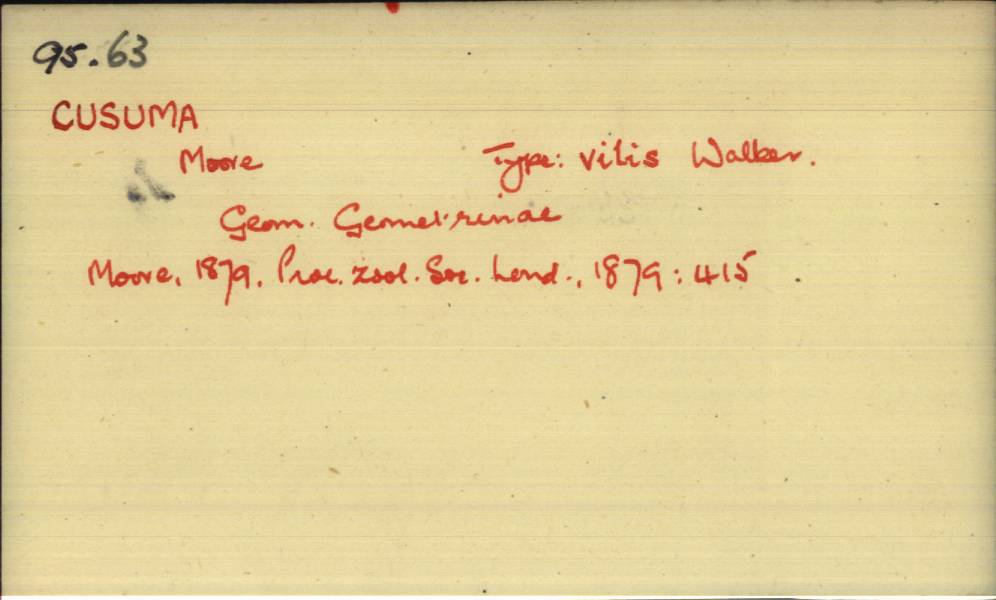 95.63
CUSUMA
Moore Type: vilis Walker.
Geom. Geometrinae
Moore, 1879. Proc. zool. Soc. Lond., 1879: 415.